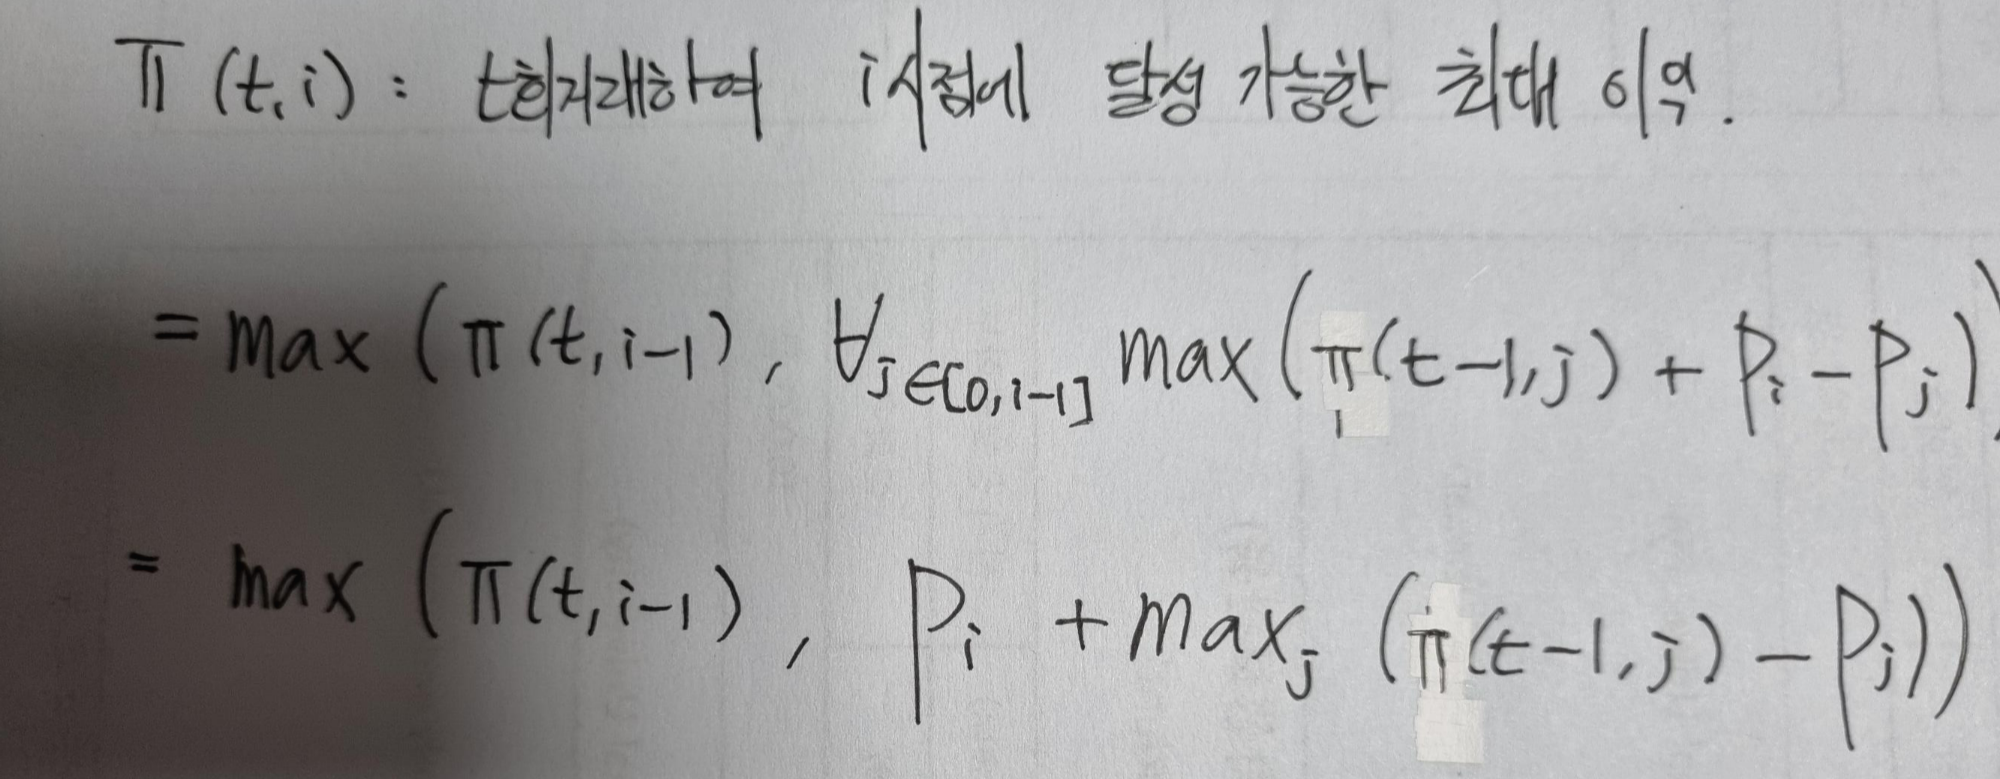 π(t,i) : t회거래하여 i시점에 달성 가능한 최대 이익.
= max (π(t,i-1), ∀j∈[0,i-1] max(π(t-1,j) + Pi - Pj)
= max (π(t,i-1), Pi + maxj (π(t-1,j) - Pj))